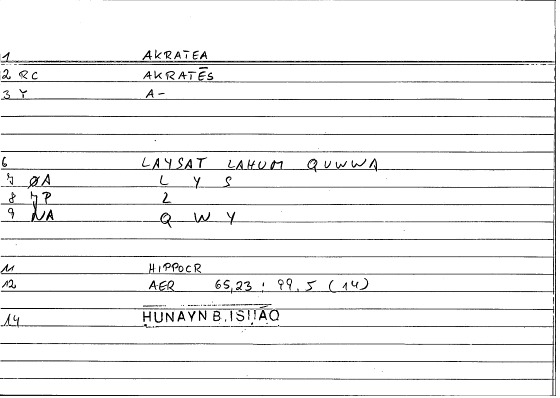 1 AKRATEA
2 RC AKRATĒS
3 Y A-
6 LAYSAT LAHUM QUWWA
7 ØA L Y S
8 7P 2
9 NA Q W Y
11 HIPPOCR
12 AER 65,23 : 99,5 (14)
14 HUNAYN B. ISḤĀQ